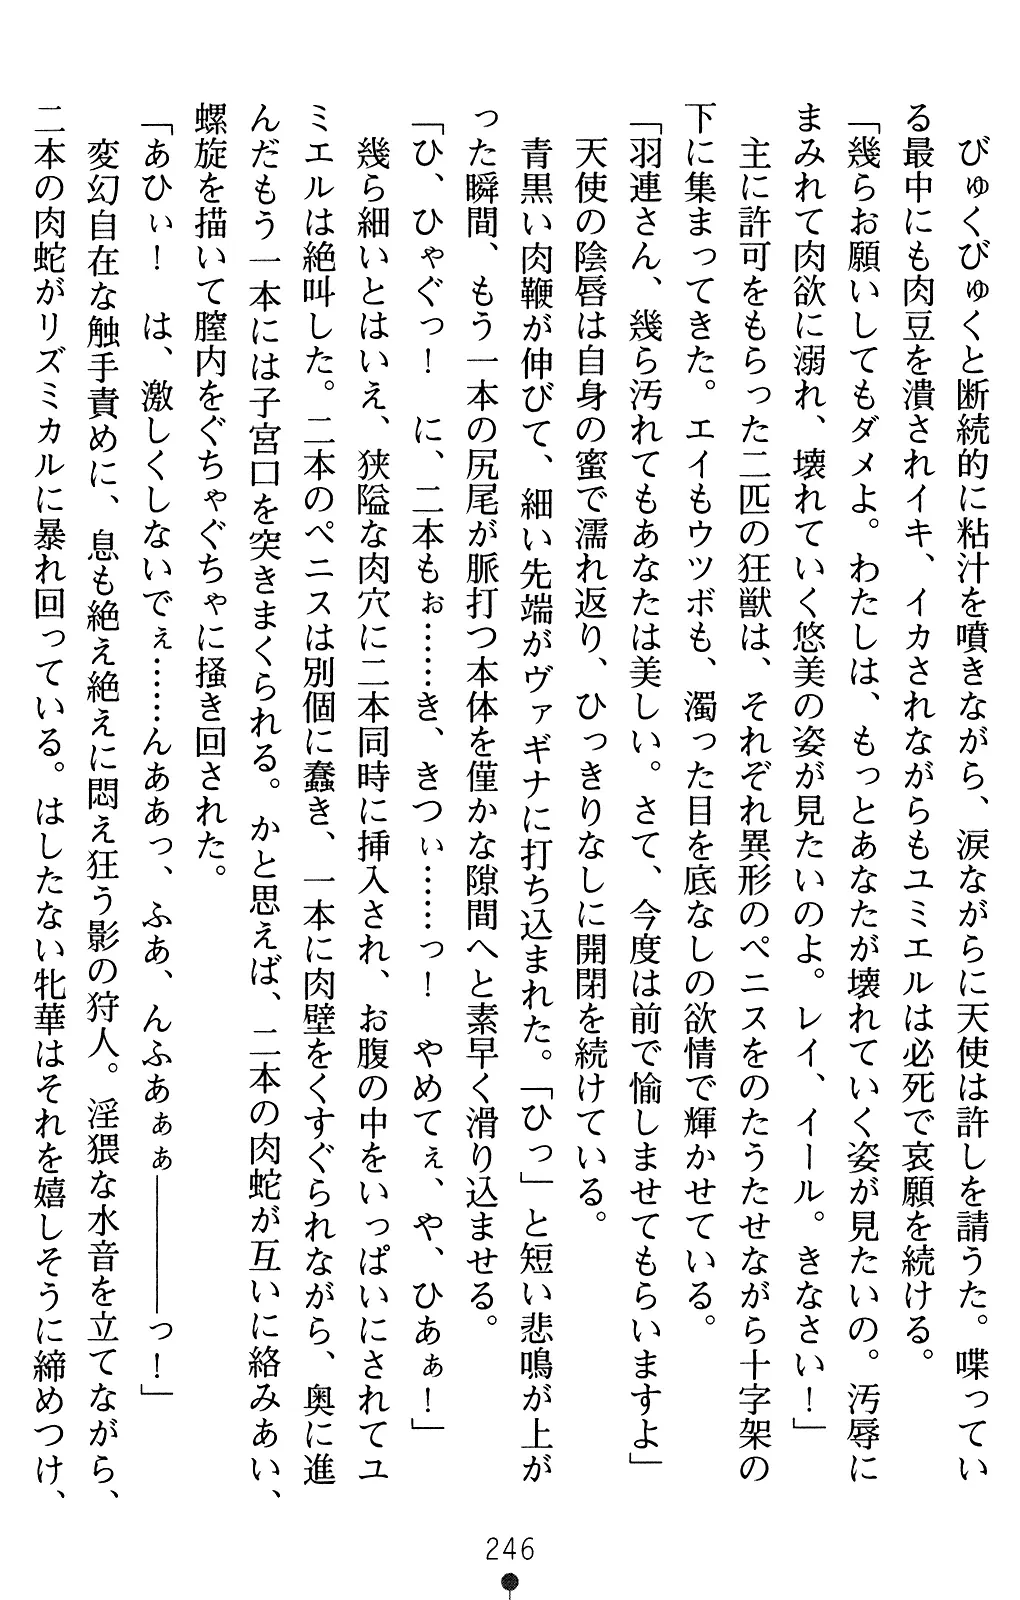 びゅくびゅくと断続的に粘汁を噴きながら、涙ながらに天使は許しを請うた。喋ってい
る最中にも肉豆を潰されイキ、イカされながらもユミエルは必死で哀願を続ける。
「幾らお願いしてもダメよ。わたしは、もっとあなたが壊れていく姿が見たいの。汚辱に
まみれて肉欲に溺れ、壊れていく悠美の姿が見たいのよ。レイ、イール。きなさい！」
主に許可をもらった二匹の狂獣は、それぞれ異形のペニスをのたうたせながら十字架の
下に集まってきた。エイもウツボも、濁った目を底なしの欲情で輝かせている。
「羽連さん、幾ら汚れてもあなたは美しい。さて、今度は前で愉しませてもらいますよ」
天使の陰唇は自身の蜜で濡れ返り、ひっきりなしに開閉を続けている。
青黒い肉鞭が伸びて、細い先端がヴァギナに打ち込まれた。「ひっ」と短い悲鳴が上が
った瞬間、もう一本の尻尾が脈打つ本体を僅かな隙間へと素早く滑り込ませる。
「ひ、ひゃぐっ！　に、二本もぉ……き、きつぃ……っ！　やめてぇ、や、ひあぁ！」
幾ら細いとはいえ、狭隘な肉穴に二本同時に挿入され、お腹の中をいっぱいにされてユ
ミエルは絶叫した。二本のペニスは別個に蠢き、一本に肉壁をくすぐられながら、奥に進
んだもう一本には子宮口を突きまくられる。かと思えば、二本の肉蛇が互いに絡みあい、
螺旋を描いて膣内をぐちゃぐちゃに掻き回された。
「あひぃ！　は、激しくしないでぇ……んああっ、ふあ、んふあぁぁ――――っ！」
変幻自在な触手責めに、息も絶え絶えに悶え狂う影の狩人。淫猥な水音を立てながら、
二本の肉蛇がリズミカルに暴れ回っている。はしたない牝華はそれを嬉しそうに締めつけ、
246